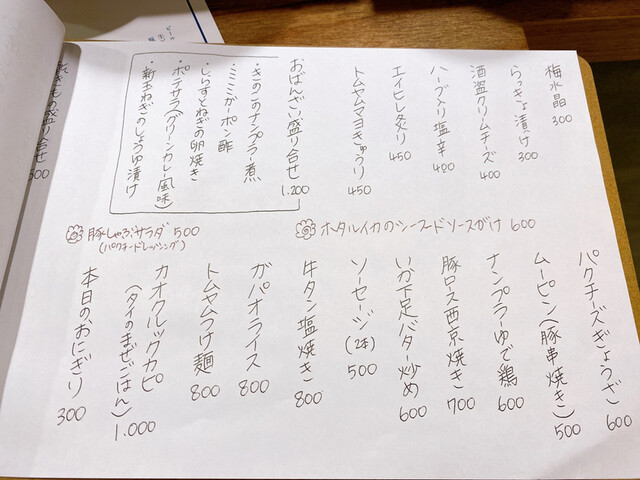 梅水晶 300
らっきょ漬け 300
酒盗クリームチーズ 400
ハーブ入り塩辛 400
エイヒレ炙り 450
トムヤムマヨきゅうり 450
おばんざい盛り合せ 1.200
・きのこのナンプラー煮
・ミミガーポン酢
・しらすとねぎの卵焼き
・ポテサラ(グリーンカレー風味)
・新玉ねぎのしょうゆ漬け
ホタルイカのシーフードソースがけ 600
豚しゃぶサラダ 500
(パクチードレッシング)
パクチーぎょうざ 600
ムーピン(豚串焼き) 500
ナンプラーゆで鶏 600
豚ロース西京焼き 700
いか下足バター炒め 600
ソーセージ(2本) 500
牛タン塩焼き 800
ガパオライス 800
トムヤムつけ麺 800
カオクルックカピ
(タイのまぜごはん) 1.000
本日のおにぎり 300
の盛り合せ 300